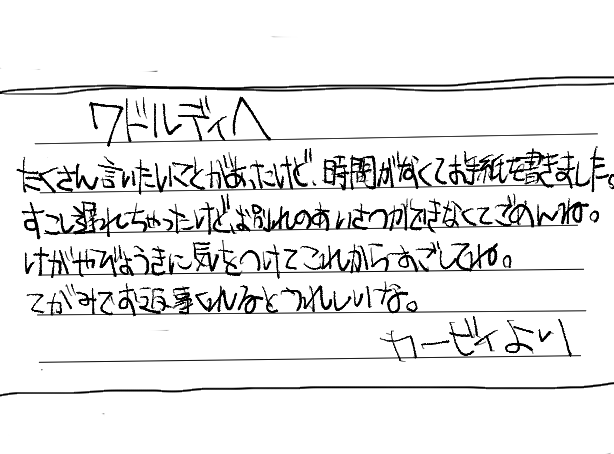 ワドルディへ
たくさん言いたいことがあったけど、時間がなくてお手紙を書きました。
すこし遅れちゃったけど、お別れのあいさつができなくてごめんね。
けがやびょうきに気をつけてこれからすごしてね。
てがみでお返事くれるとうれしいな。
カービィより